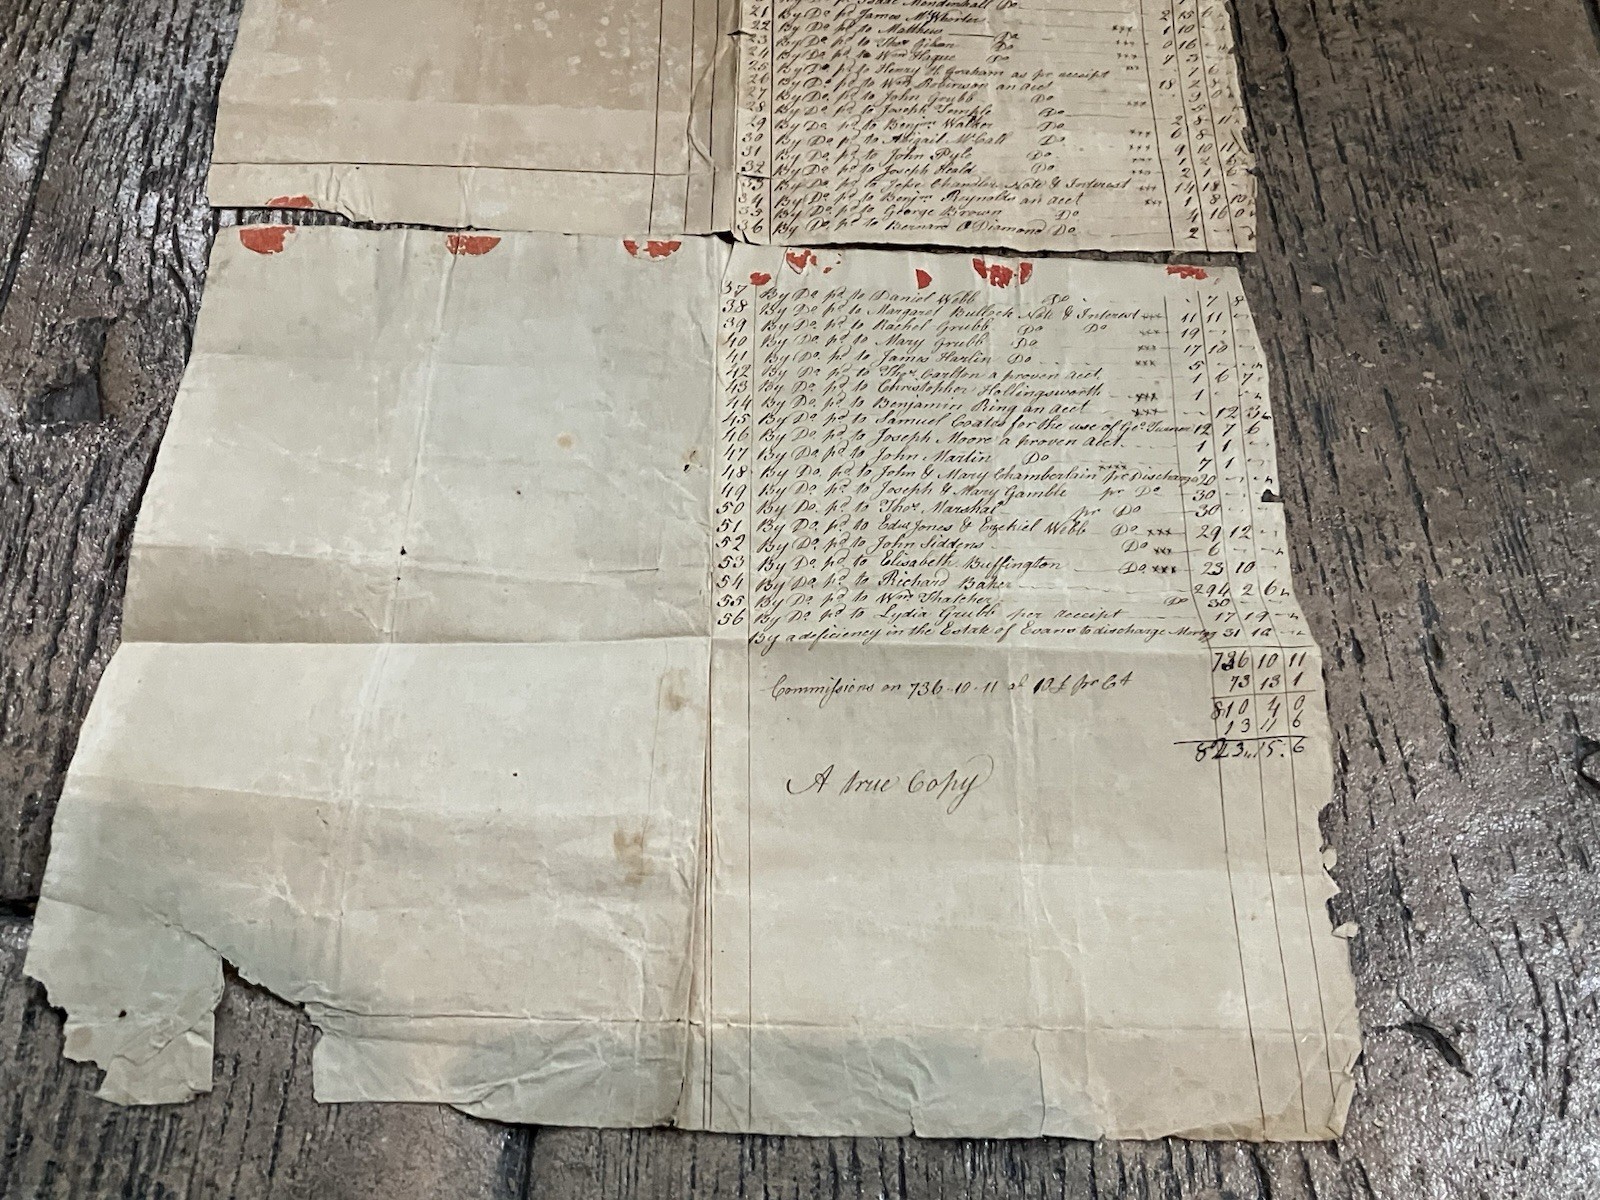 Isaac Mendenhall Do
21 By Do pd to James McWhorter 2 15 6
22 By Do pd to Matthew Do xxx 1 10
23 By Do pd to Thos Gibson Do xxx 0 16
24 By Do pd to Wm Hague Do xxx 4 3
25 By Do pd to Henry H. Graham as pr receipt xxx 7 6
26 By Do pd to Wm Robinson an acct 18 2
27 By Do pd to John Grubb Do
28 By Do pd to Joseph Temple xxx
29 By Do pd to Benjn Walker Do 2 8 11
30 By Do pd to Abigail McCall Do xxx 6 8
31 By Do pd to John Pyle Do xxx 9 10 11
32 By Do pd to Joseph Heald Do xxx 1 2 6
33 By Do pd to John Chandler Note & Interest xxx 14 18
34 By Do pd to Benjn Reynolds an acct xxx 1 8 10
35 By Do pd to George Brown Do 4 16 0
36 By Do pd to Bernard O Diamond Do 2
37 By Do pd to Daniel Webb Do 7 8
38 By Do pd to Margaret Bulloch Note & Interest xxx 11 11
39 By Do pd to Rachel Grubb Do Do xxx 19
40 By Do pd to Mary Grubb Do xxx 17 10
41 By Do pd to James Harlin Do xxx 5
42 By Do pd to Thos Carlton a proven acct 1 6 7
43 By Do pd to Christopher Hollingsworth xxx 1
44 By Do pd to Benjamin Ring an acct xxx 12 3
45 By Do pd to Samuel Coates for the use of Geo Turner 12 7 6
46 By Do pd to Joseph Moore a proven acct 1 1
47 By Do pd to John Martin Do 7 1
48 By Do pd to John & Mary Chamberlain xxxx pr Discharge 20
49 By Do pd to Joseph & Mary Gamble pr Do 30
50 By Do pd to Thos Marshal pr Do 30
51 By Do pd to Edw Jones & Ezekiel Webb Do xxx 29 12
52 By Do pd to John Siddens Do xxx 6
53 By Do pd to Elisabeth Buffington Do xxx 23 10
54 By Do pd to Richard Baker 294 2 6
55 By Do pd to Wm Thatcher Do 30
56 By Do pd to Lydia Grubb per receipt 17 19
By a deficiency in the Estate of Evans to discharge Mortg 31 16
736 10 11
Commissions on 736-10-11 at 10£ pr Ct 73 13 1
810 4 0
13 11 6
823,,15.6
A true Copy